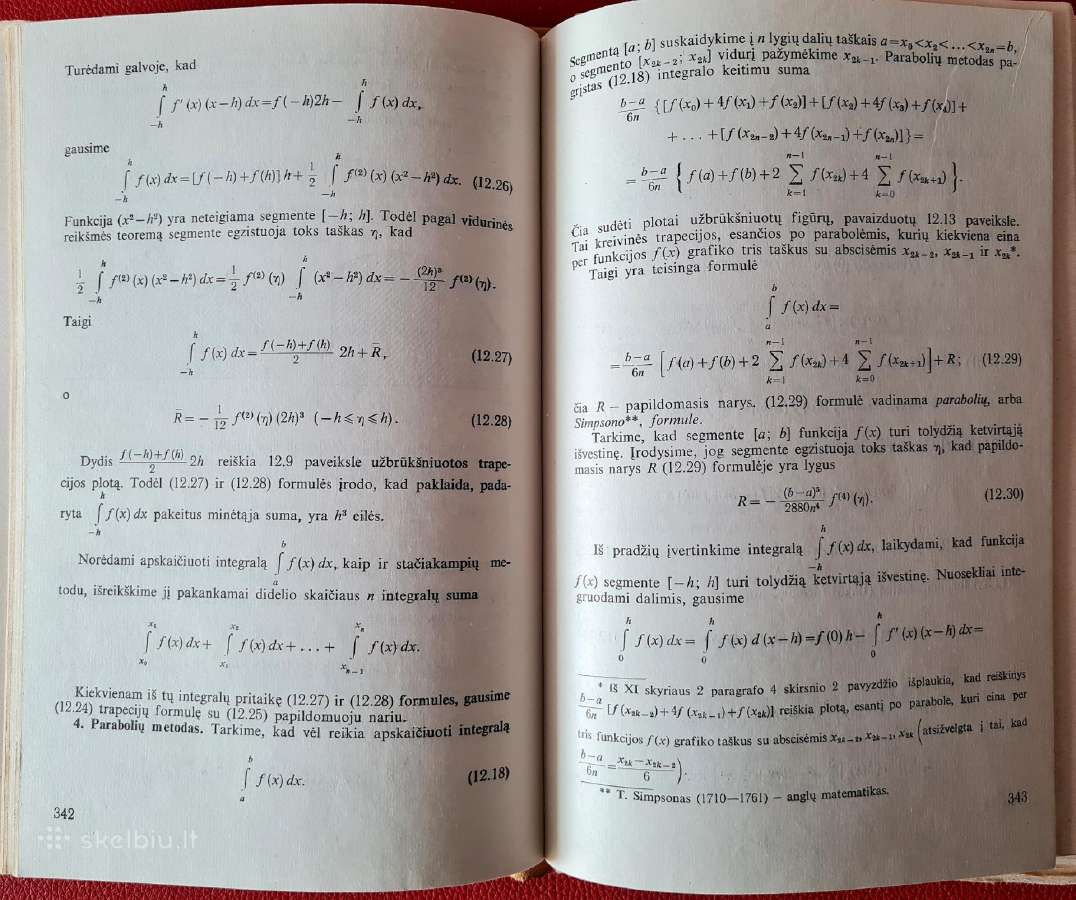 Turėdami galvoje, kad
∫_{−h}^{h} f′ (x) (x−h) dx=f (−h)2h− ∫_{−h}^{h} f (x) dx,
gausime
∫_{−h}^{h} f (x) dx=[f (−h)+f (h)] h+ 1/2 ∫_{−h}^{h} f⁽²⁾ (x) (x²−h²) dx. (12.26)
Funkcija (x²−h²) yra neteigiama segmente [−h; h]. Todėl pagal vidurinės
reikšmės teoremą segmente egzistuoja toks taškas η, kad
1/2 ∫_{−h}^{h} f⁽²⁾ (x) (x²−h²) dx= 1/2 f⁽²⁾ (η) ∫_{−h}^{h} (x²−h²) dx= − (2h)³/12 f⁽²⁾ (η).
Taigi
∫_{−h}^{h} f (x) dx= (f (−h)+f (h))/2 2h+R̄, (12.27)
o
R̄= − 1/12 f⁽²⁾ (η) (2h)³ (−h⩽η⩽h). (12.28)
Dydis (f (−h)+f (h))/2 2h reiškia 12.9 paveiksle užbrūkšniuotos trape-
cijos plotą. Todėl (12.27) ir (12.28) formulės įrodo, kad paklaida, pada-
ryta ∫_{−h}^{h} f (x) dx pakeitus minėtąja suma, yra h³ eilės.
Norėdami apskaičiuoti integralą ∫_{a}^{b} f (x) dx, kaip ir stačiakampių me-
todu, išreikškime jį pakankamai didelio skaičiaus n integralų suma
∫_{x₀}^{x₁} f (x) dx+ ∫_{x₁}^{x₂} f (x) dx+ . . . + ∫_{xₙ₋₁}^{xₙ} f (x) dx.
Kiekvienam iš tų integralų pritaikę (12.27) ir (12.28) formules, gausime
(12.24) trapecijų formulę su (12.25) papildomuoju nariu.
4. Parabolių metodas. Tarkime, kad vėl reikia apskaičiuoti integralą
∫_{a}^{b} f (x) dx. (12.18)
342
skelbiu.lt
Segmentą [a; b] suskaidykime į n lygių dalių taškais a=x₀<x₂<...<x₂ₙ=b,
o segmento [x₂ₖ₋₂; x₂ₖ] vidurį pažymėkime x₂ₖ₋₁. Parabolių metodas pa-
grįstas (12.18) integralo keitimu suma
(b−a)/6n {[f (x₀)+4f (x₁)+f (x₂)]+[f (x₂)+4f (x₃)+f (x₄)]+
+ . . . +[f (x₂ₙ₋₂)+4f (x₂ₙ₋₁)+f (x₂ₙ)]}=
= (b−a)/6n { f (a)+f (b)+2 ∑_{k=1}^{n−1} f (x₂ₖ)+4 ∑_{k=0}^{n−1} f (x₂ₖ₊₁) }.
Čia sudėti plotai užbrūkšniuotų figūrų, pavaizduotų 12.13 paveiksle.
Tai kreivinės trapecijos, esančios po parabolėmis, kurių kiekviena eina
per funkcijos f (x) grafiko tris taškus su abscisėmis x₂ₖ₋₂, x₂ₖ₋₁ ir x₂ₖ*.
Taigi yra teisinga formulė
∫_{a}^{b} f (x) dx=
= (b−a)/6n [ f (a)+f (b)+2 ∑_{k=1}^{n−1} f (x₂ₖ)+4 ∑_{k=0}^{n−1} f (x₂ₖ₊₁) ]+R; (12.29)
čia R − papildomasis narys. (12.29) formulė vadinama parabolių, arba
Simpsono**, formule.
Tarkime, kad segmente [a; b] funkcija f (x) turi tolydžią ketvirtąją
išvestinę. Įrodysime, jog segmente egzistuoja toks taškas η, kad papildo-
masis narys R (12.29) formulėje yra lygus
R= − (b−a)⁵/2880n⁴ f⁽⁴⁾ (η). (12.30)
Iš pradžių įvertinkime integralą ∫_{−h}^{h} f (x) dx, laikydami, kad funkcija
f (x) segmente [−h; h] turi tolydžią ketvirtąją išvestinę. Nuosekliai inte-
gruodami dalimis, gausime
∫_{0}^{h} f (x) dx= ∫_{0}^{h} f (x) d (x−h)=f (0) h− ∫_{0}^{h} f′ (x) (x−h) dx=
* Iš XI skyriaus 2 paragrafo 4 skirsnio 2 pavyzdžio išplaukia, kad reiškinys
(b−a)/6n [f (x₂ₖ₋₂)+4f (x₂ₖ₋₁)+f (x₂ₖ)] reiškia plotą, esantį po parabole, kuri eina per
tris funkcijos f (x) grafiko taškus su abscisėmis x₂ₖ₋₂, x₂ₖ₋₁, x₂ₖ (atsižvelgta į tai, kad
(b−a)/6n = (x₂ₖ−x₂ₖ₋₂)/6).
** T. Simpsonas (1710—1761) − anglų matematikas.
343